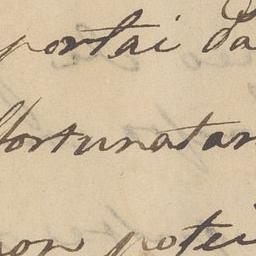 portai da
fortunatam
non potei